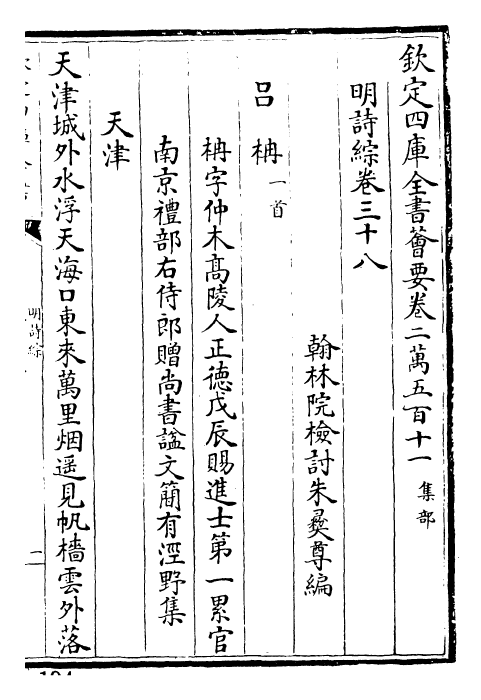 欽定四庫全書薈要卷二萬五百十一 集部
明詩綜卷三十八
翰林院檢討朱彛尊編
吕 柟 一首
柟字仲木髙陵人正德戊辰賜進士第一累官
南京禮部右侍郎贈尚書諡文簡有涇野集
天津
天津城外水浮天海口東來萬里烟遥見帆檣雲外落
明詩綜
二